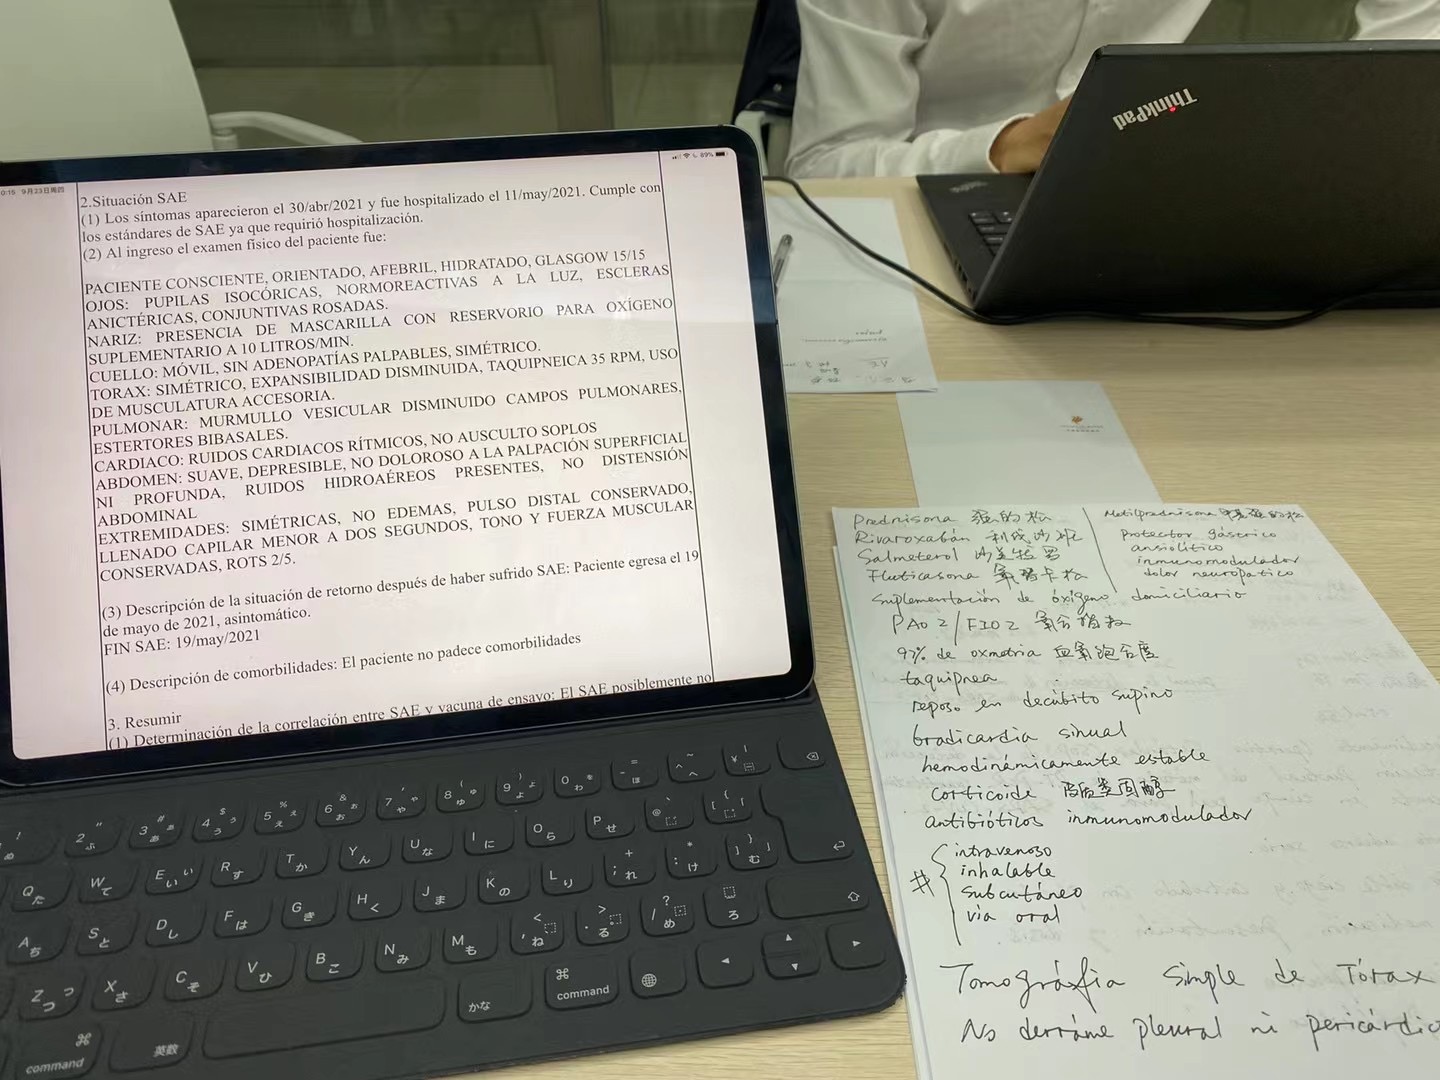 9月23日周四
89%
2.Situación SAE
(1) Los síntomas aparecieron el 30/abr/2021 y fue hospitalizado el 11/may/2021. Cumple con
los estándares de SAE ya que requirió hospitalización.
(2) Al ingreso el examen físico del paciente fue:
PACIENTE CONSCIENTE, ORIENTADO, AFEBRIL, HIDRATADO, GLASGOW 15/15
OJOS: PUPILAS ISOCÓRICAS, NORMOREACTIVAS A LA LUZ, ESCLERAS
ANICTÉRICAS, CONJUNTIVAS ROSADAS.
NARIZ: PRESENCIA DE MASCARILLA CON RESERVORIO PARA OXÍGENO
SUPLEMENTARIO A 10 LITROS/MIN.
CUELLO: MÓVIL, SIN ADENOPATÍAS PALPABLES, SIMÉTRICO.
TORAX: SIMÉTRICO, EXPANSIBILIDAD DISMINUIDA, TAQUIPNEICA 35 RPM, USO
DE MUSCULATURA ACCESORIA.
PULMONAR: MURMULLO VESICULAR DISMINUIDO CAMPOS PULMONARES,
ESTERTORES BIBASALES.
CARDIACO: RUIDOS CARDIACOS RÍTMICOS, NO AUSCULTO SOPLOS
ABDOMEN: SUAVE, DEPRESIBLE, NO DOLOROSO A LA PALPACIÓN SUPERFICIAL
NI PROFUNDA, RUIDOS HIDROAÉREOS PRESENTES, NO DISTENSIÓN
ABDOMINAL
EXTREMIDADES: SIMÉTRICAS, NO EDEMAS, PULSO DISTAL CONSERVADO,
LLENADO CAPILAR MENOR A DOS SEGUNDOS, TONO Y FUERZA MUSCULAR
CONSERVADAS, ROTS 2/5.
(3) Descripción de la situación de retorno después de haber sufrido SAE: Paciente egresa el 19
de mayo de 2021, asintomático.
FIN SAE: 19/may/2021
(4) Descripción de comorbilidades: El paciente no padece comorbilidades
3. Resumir
(1) Determinación de la correlación entre SAE y vacuna de ensayo: El SAE posiblemente no
ThinkPad
Prednisona 泼的松
Rivaroxabán 利伐沙班
Salmeterol 沙美特罗
Fluticasona 氟替卡松
Metilprednisona 甲基泼的松
Protector gástrico
ansiolítico
inmunomodulador
dolor neuropático
Suplementación de óxígeno domiciliario
PAO2/FIO2 氧合指数
97% de oxmetria 血氧饱合度
taquipnea
reposo en decúbito supino
bradicardia sinual
hemodinámicamente estable
corticoide 皮质类固醇
antibióticos inmunomodulador
intravenoso
inhalable
subcutáneo
via oral
Tomográfia simple de Tórax
No derráme pleural ni pericárdico
command
かな
英数
command